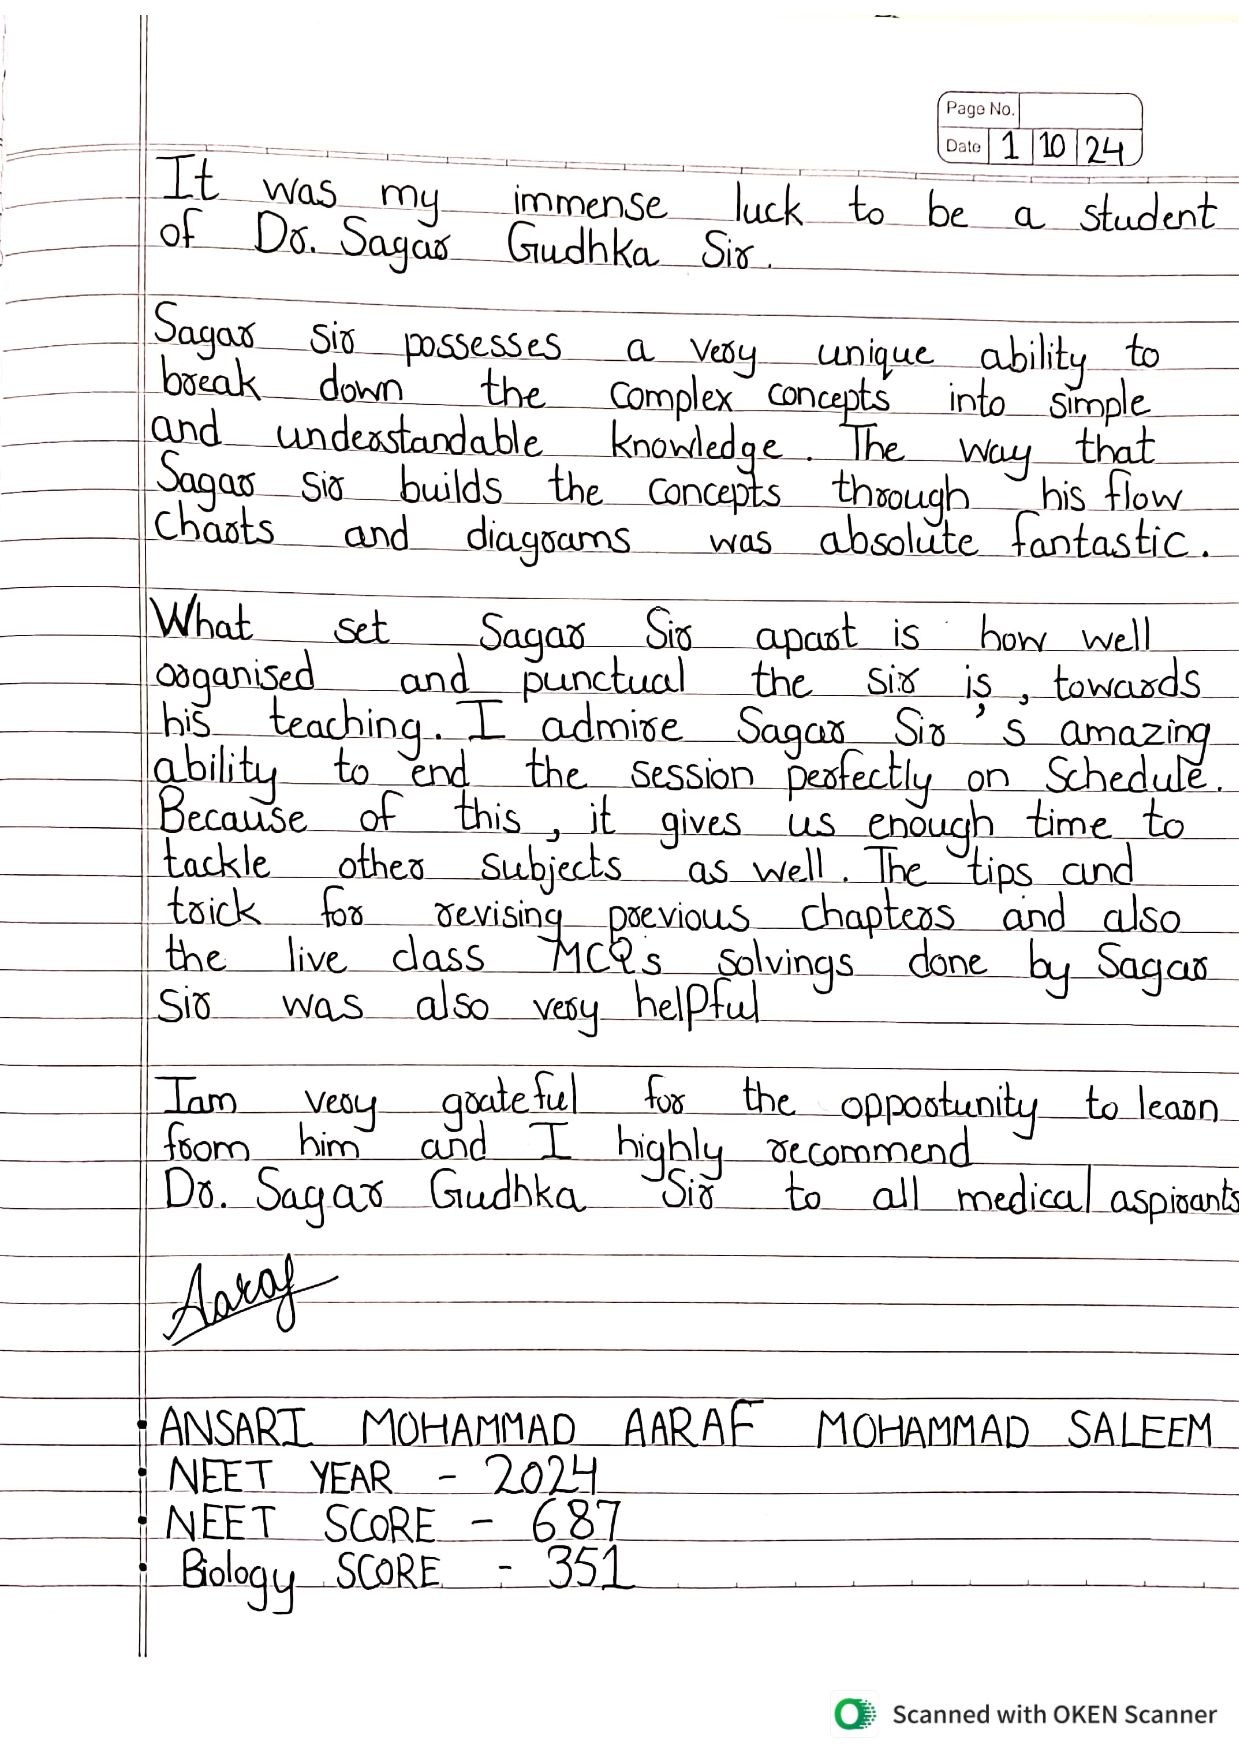 Page No.
Date 1 10 24
It was my immense luck to be a student
of Dr. Sagar Gudhka Sir.
Sagar sir possesses a very unique ability to
break down the complex concepts into simple
and understandable knowledge. The way that
Sagar sir builds the concepts through his flow
charts and diagrams was absolute fantastic.
What set Sagar Sir apart is how well
organised and punctual the sir is, towards
his teaching. I admire Sagar Sir's amazing
ability to end the session perfectly on Schedule.
Because of this, it gives us enough time to
tackle other subjects as well. The tips and
trick for revising previous chapters and also
the live class MCQs solvings done by Sagar
sir was also very helpful
Iam very grateful for the opportunity to learn
from him and I highly recommend
Dr. Sagar Gudhka Sir to all medical aspirants
Aaraf
• ANSARI MOHAMMAD AARAF MOHAMMAD SALEEM
• NEET YEAR - 2024
• NEET SCORE - 687
• Biology SCORE - 351
Scanned with OKEN Scanner